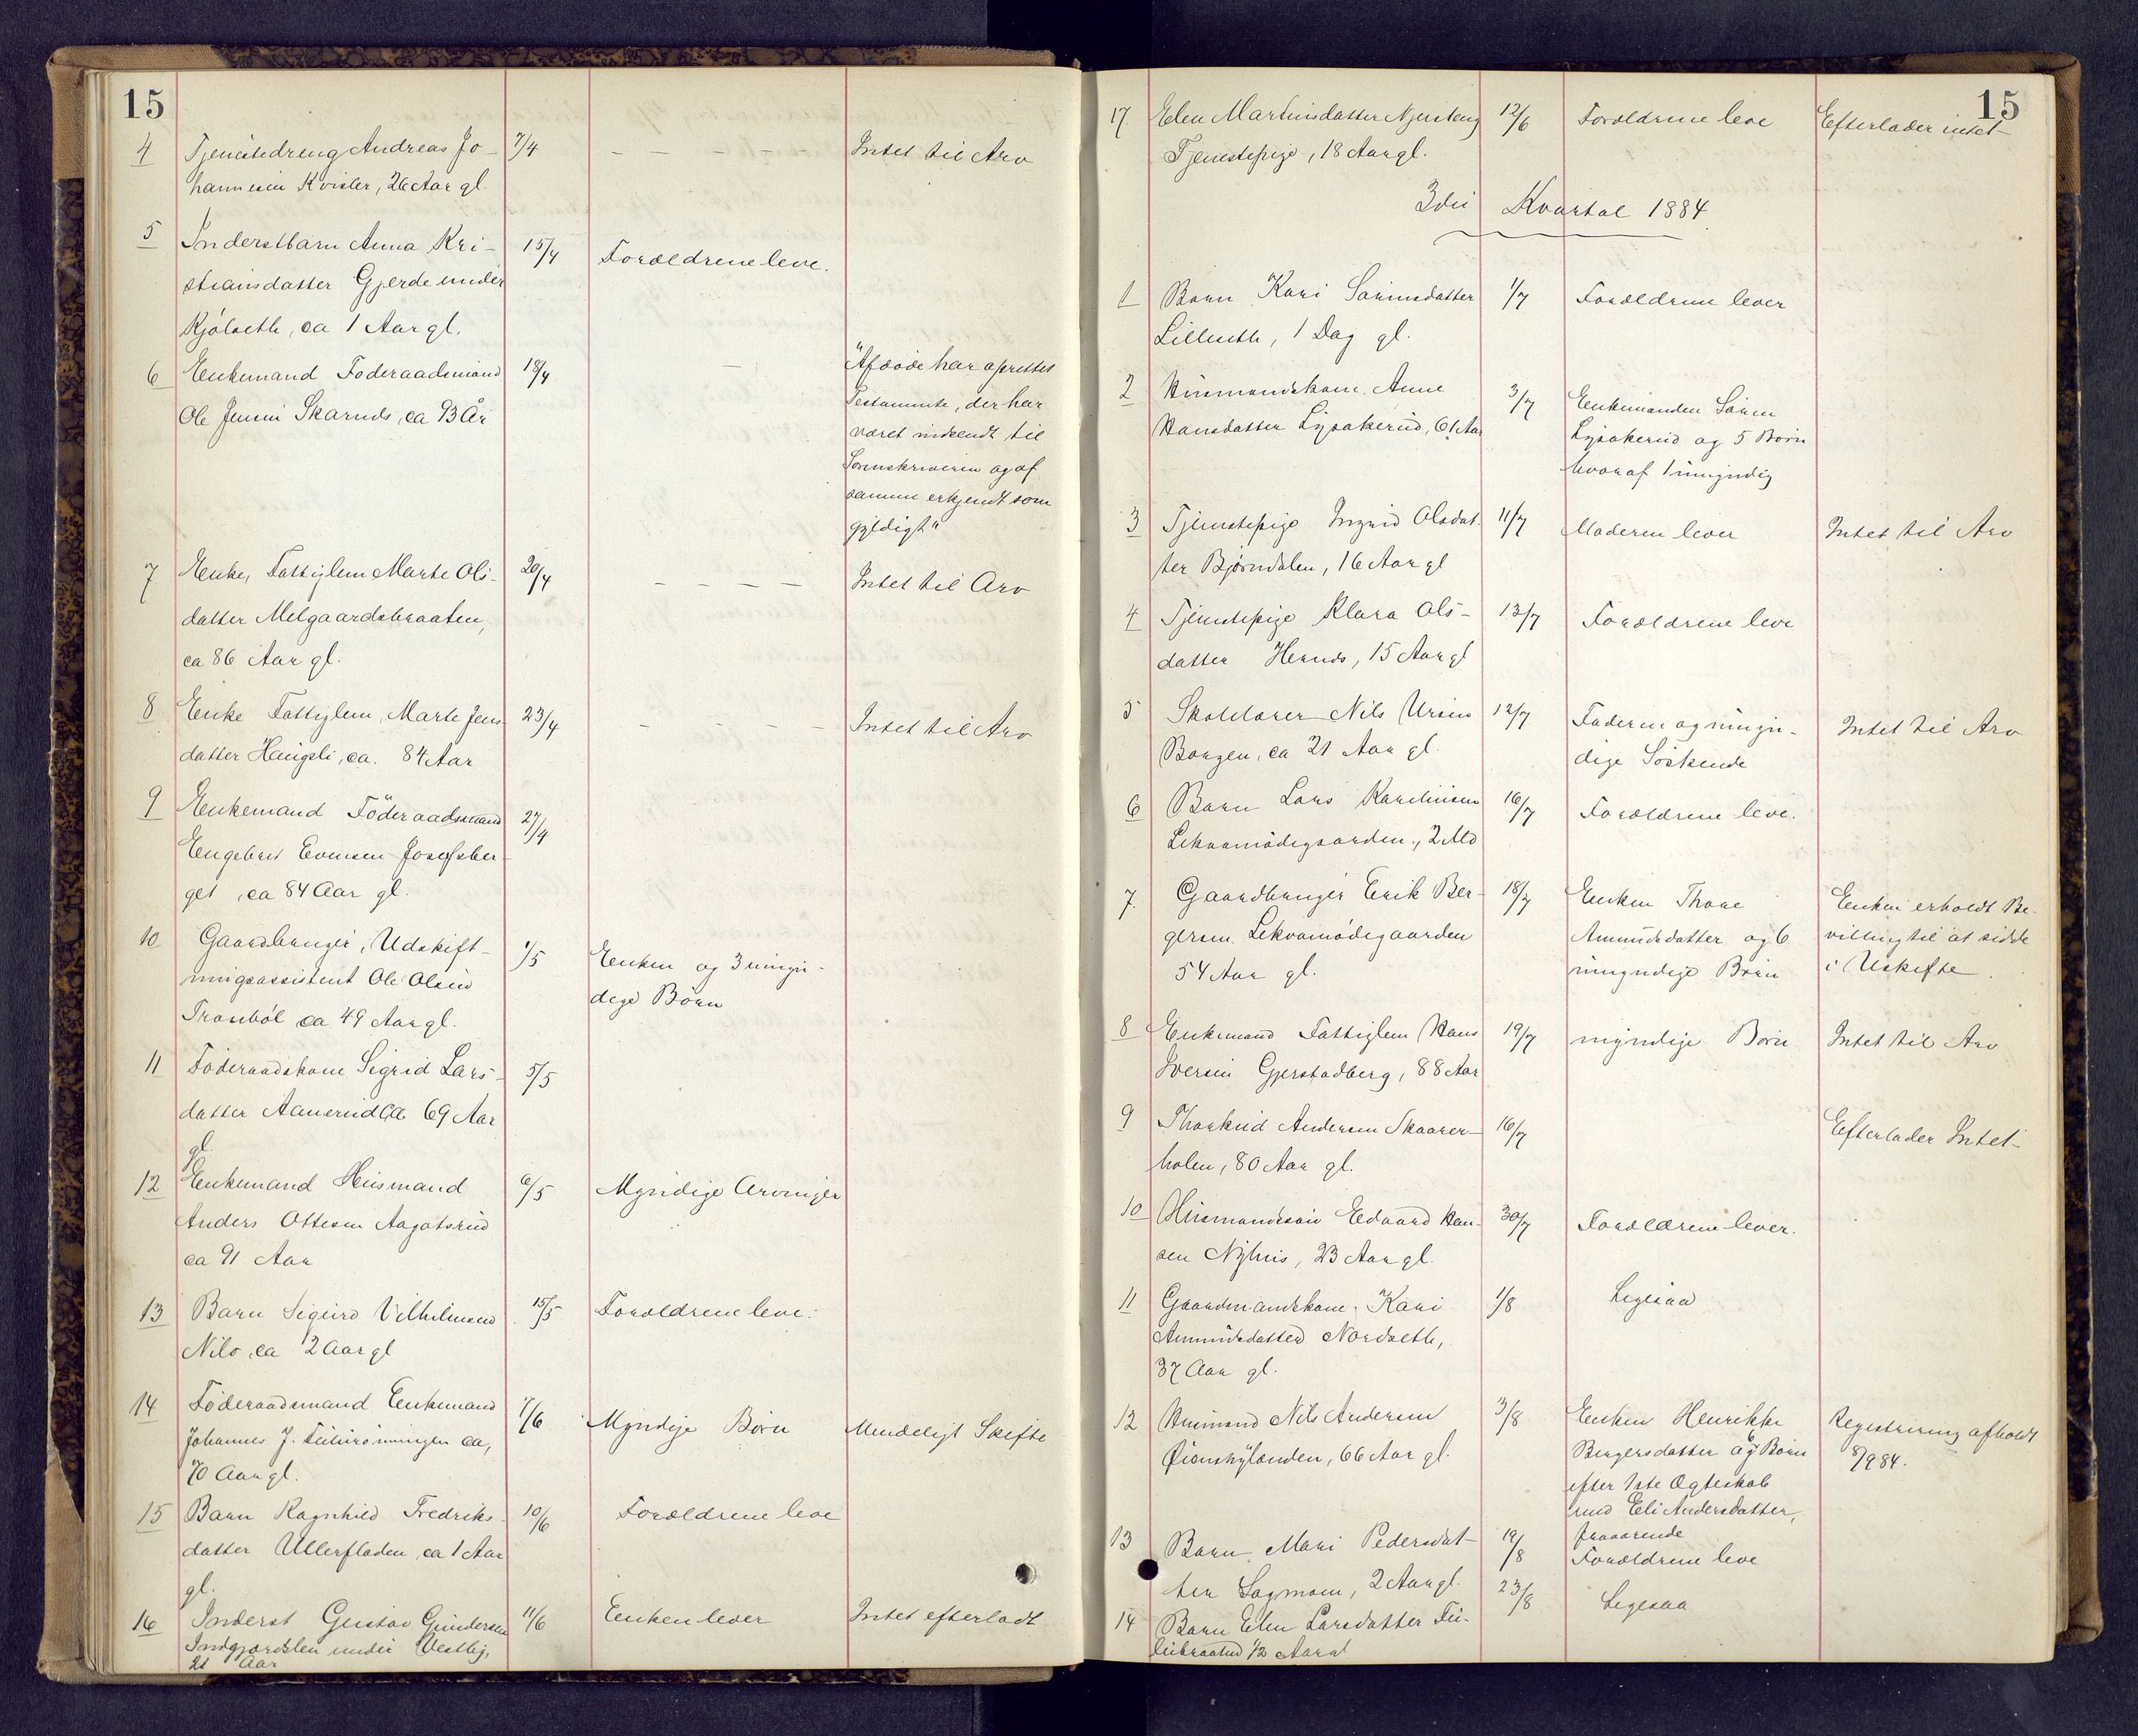 15
4 Tjenestedreng Andreas Jo- 7/4 – – – – – Intet til Arv
hannesen Kvisler, 26 Aar gl.
5 Inderstbarn Anna Kri- 15/4 Forældrene leve.
stiansdatter Gjerde under
Kjölseth, ca 1 Aar gl.
6 Enkemand Föderaadsmand 18/4 – "Afdøde har oprettet
Ole Jensen Skarnes, ca 93 År Testamente, der har
været indsendt til
Sorenskriveren og af
samme erkjendt som
gyldigt"
7 Enke, Fattiglem Marte Ols- 20/4 – – – – Intet til Arv
datter Melgaardsbraaten,
ca 86 Aar gl.
8 Enke Fattiglem, Marte Jens- 23/4 – – – – Intet til Arv
datter Haugsli, ca. 84 Aar
9 Enkemand Föderaadsmand 27/4
Engebret Evensen Josefsber-
get, ca 84 Aar gl.
10 Gaardbruger, Udskift- 1/5 Enken og 3 umyn-
ningsassistent Ole Olsen dige Börn
Tranböl ca 49 Aar gl.
11 Föderaadskone Sigrid Lars- 5/5
datter Aanerud ca 69 Aar
gl.
12 Enkemand Husmand 6/5 Myndige Arvinger
Anders Ottesen Aagotsrud
ca 91 Aar
13 Barn Sigurd Vilhelmsen 15/5 Forældrene leve.
Nilo, ca 2 Aar gl
14 Föderaadsmand Enkemand 7/6 Myndige Börn Mindeligt Skifte
Johannes J. ca,
70 Aar gl.
15 Barn Ragnhild Fredriks- 10/6 Forældrene leve
datter Ullerfladen, ca 1 Aar
gl.
16 Inderst Gustav Gundersen 11/6 Enken lever Intet efterladt
under Vestby,
21 Aar
15
17. Elen Martinsdatter 12/6 Forældrene leve Efterlader intet
Tjenestepige, 18 Aar gl.
3die Kvartal 1884
1 Barn Kari Sörensdatter 1/7 Forældrene lever
Lilleseth, 1 Dag gl.
2 Husmandskone. Anne 3/7 Enkemanden Sören
Hansdatter Lysakerud, 61 Aar Lysakerud og 5 Börn
hvoraf 1 umyndig
3 Tjenestepige Ingrid Olsdat- 11/7 Moderen lever Intet til Arv
ter Bjørndalen, 16 Aar gl
4 Tjenestepige Klara Ols- 13/7 Forældrene leve
datter Hernes, 15 Aar gl
5 Skolelærer Nils Ursin 12/7 Faderen og umyn- Intet til Arv
Borgen, ca 21 Aar gl. dige Söskende
6 Barn Lars Karelinsen 16/7 Forældrene leve.
Lekvamödegaarden, 2 Md
7. Gaardbruger Erik Ber- 18/7 Enken Thore Enken erholdt Be-
gersen. Lekvamödegaarden Amundsdatter og 6 villing til at sidde
54 Aar gl. umyndige Börn i Uskifte.
8 Enkemand Fattiglem Hans 19/7 myndige Börn Intet til Arv
Iversen Gjerstadberg, 88 Aar
9 Thorkild Andersen Skaarer- 16/7 Efterlader Intet
holen, 80 Aar gl.
10 Husmandssön Edvard Han- 30/7 Forældrene lever.
sen Nyhus, 23 Aar gl.
11 Gaardmandskone. Kari 1/8 Ligesaa
Amundsdatter Nordseth,
37 Aar gl.
12 Husmand Nils Andersen 3/8 Enken Henrikke Registrering afholdt
66 Aar gl. Bergersdatter og Börn 8/9 84.
efter 1ste Ægteskab
med Eli Andersdatter,
fraværende
13 Barn Mari Pedersdat- 19/8 Forældrene leve
ter Sagmoen, 2 Aar gl.
14 Barn Elen Larsdatter 23/8 Ligesaa
1/2 Aar gl